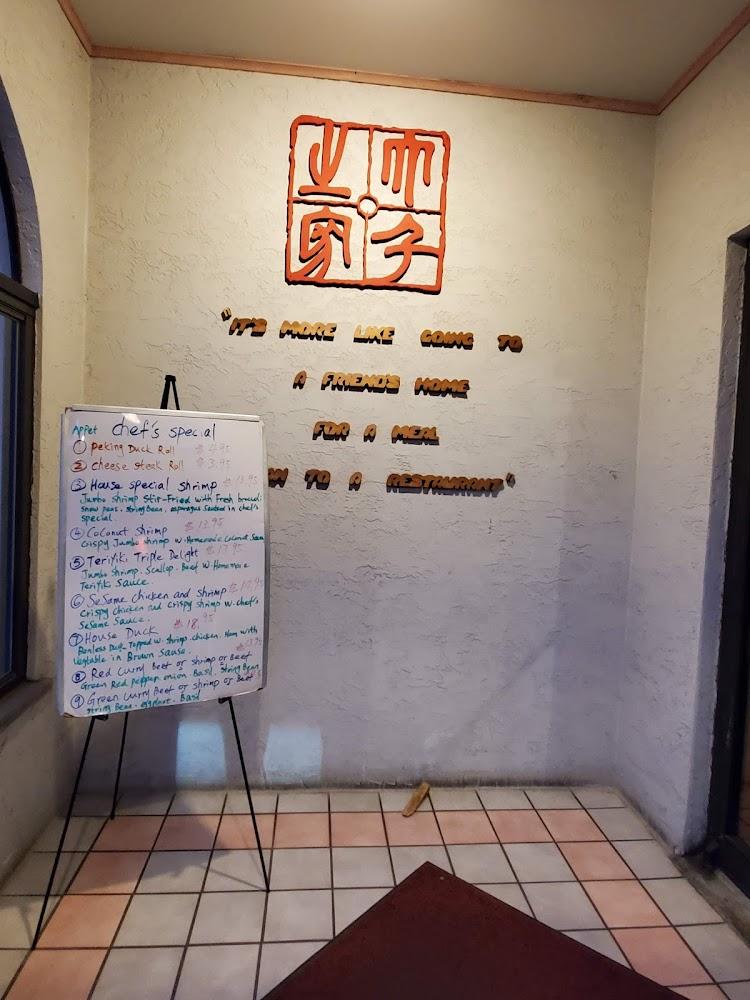 之 天
家 子
"IT'S MORE LIKE GOING TO
A FRIEND'S HOME
FOR A MEAL
TO A RESTAURANT"
Appet chef's special
① Peking Duck Roll $ 4.95
② cheese steak Roll $ 3.95
③ House special shrimp $ 13.95
Jumbo shrimp Stir-Fried with Fresh broccoli
snow peas, string Bean, asparagus Sauteed in chef's
special.
④ Coconut Shrimp $ 13.95
crispy Jumbo shrimp w. Homemade Coconut Sauce
⑤ Teriyiki Triple Delight $ 17.95
Jumbo Shrimp. Scallop. Beef w. Homemade
Teriyiki Sauce.
⑥ SeSame chicken and shrimp
Crispy chicken and crispy shrimp w. chef's
SeSame Sauce.
⑦ House Duck $ 18.95
Bonless Duck Topped w. shrimp. chicken. Ham with
Vegtable in Brown Sause.
⑧ Red curry Beef or shrimp or Beef
Green Red pepper. onion. Basil. String Bean
⑨ Green curry Beef or shrimp or Beef
String Bean. eggplant. Basil